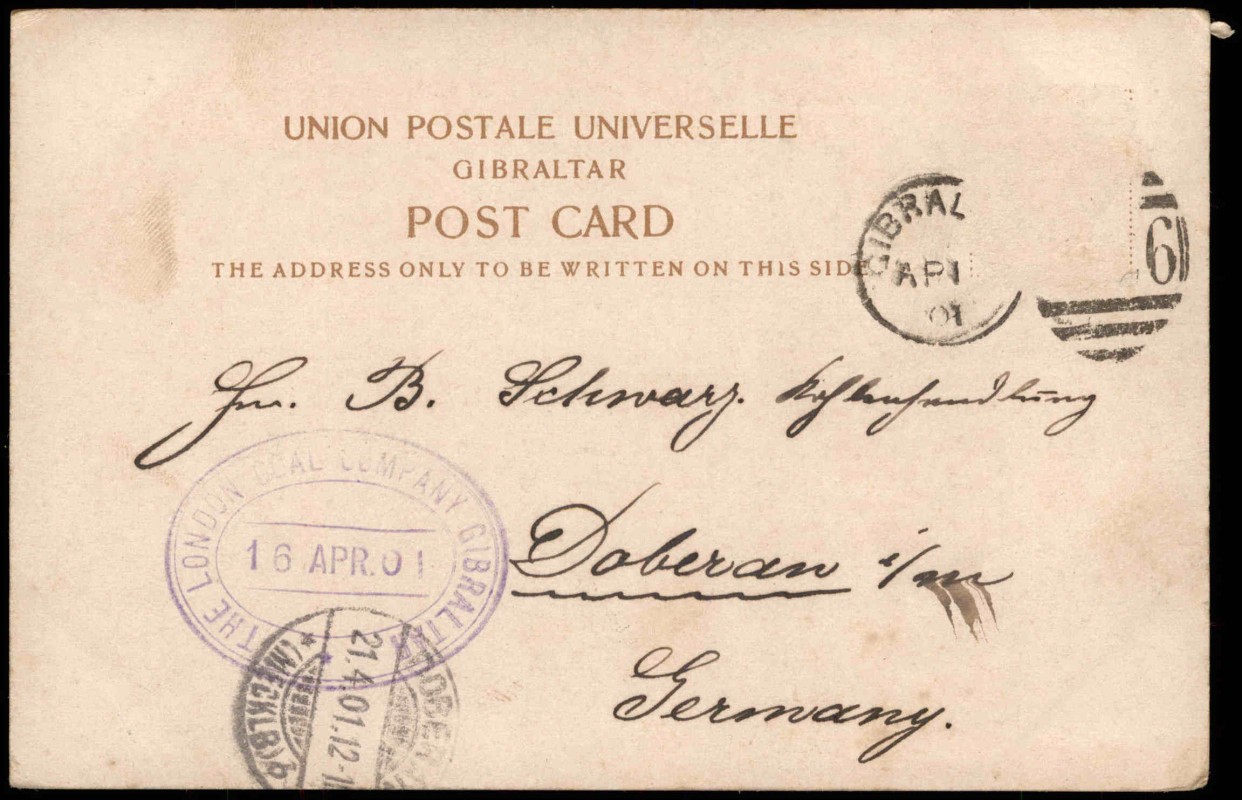 UNION POSTALE UNIVERSELLE
GIBRALTAR
POST CARD
THE ADDRESS ONLY TO BE WRITTEN ON THIS SIDE
GIBRAL
AP 1
01
6
Hrn. B. Schwarz. Kohlenhandlung
Doberan i/m
Germany.
THE LONDON COAL COMPANY GIBRALTAR
16 APR. 01
DOBERA
21.4.01.12-1
*(MECKLB)b*